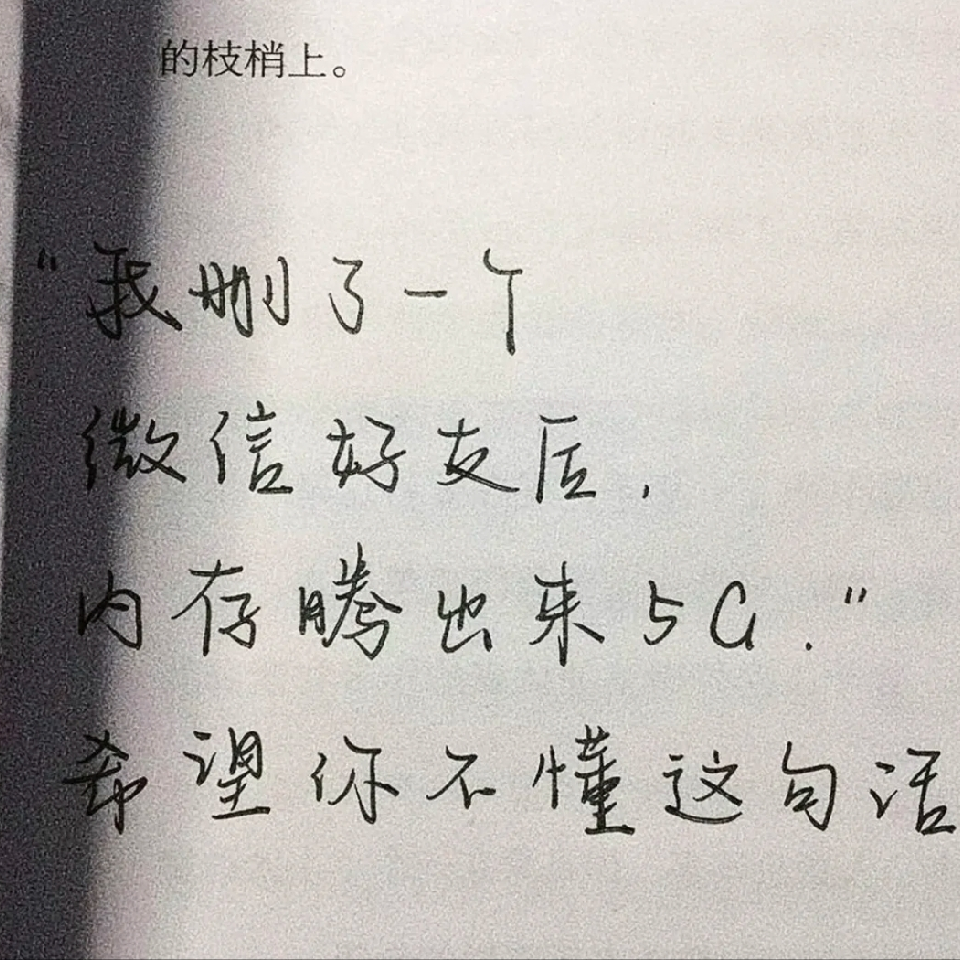 的枝梢上。
“我删了一个
微信好友后,
内存腾出来5G.”
希望你不懂这句话